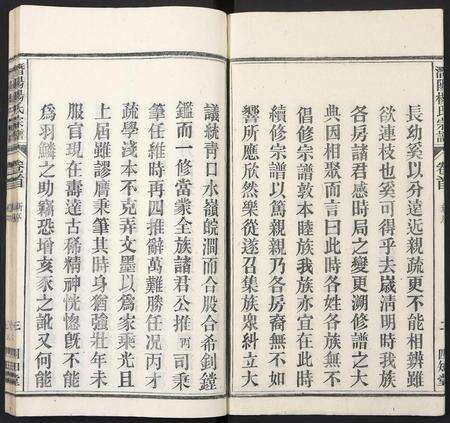 長幼奚以分遠近親疏更不能相辨雖
欲連枝也奚可得乎去歲清明時我族
各房諸君感時局之變更溯修譜之大
典因相聚而言曰此時各姓各族無不
倡修宗譜敦本睦族我族亦宜在此時
續修宗譜以篤親親乃各房裔無不如
響所應欣然樂從遂召集族眾糾立大
議統青口水嶺皖澗而合股合希釗鏜
鑑而一修當蒙全族諸君公推丙司秉
筆任維時再四推辭萬難勝任况丙才
疏學淺本不克弄文墨以為家乘光且
上屆雖謬膺秉筆其時身猶強壯年未
服官現在壽達古稀精神恍惚旣不能
為羽鱗之助竊恐增亥豕之訛又何能
濳陽楊氏宗譜
卷首
四知堂